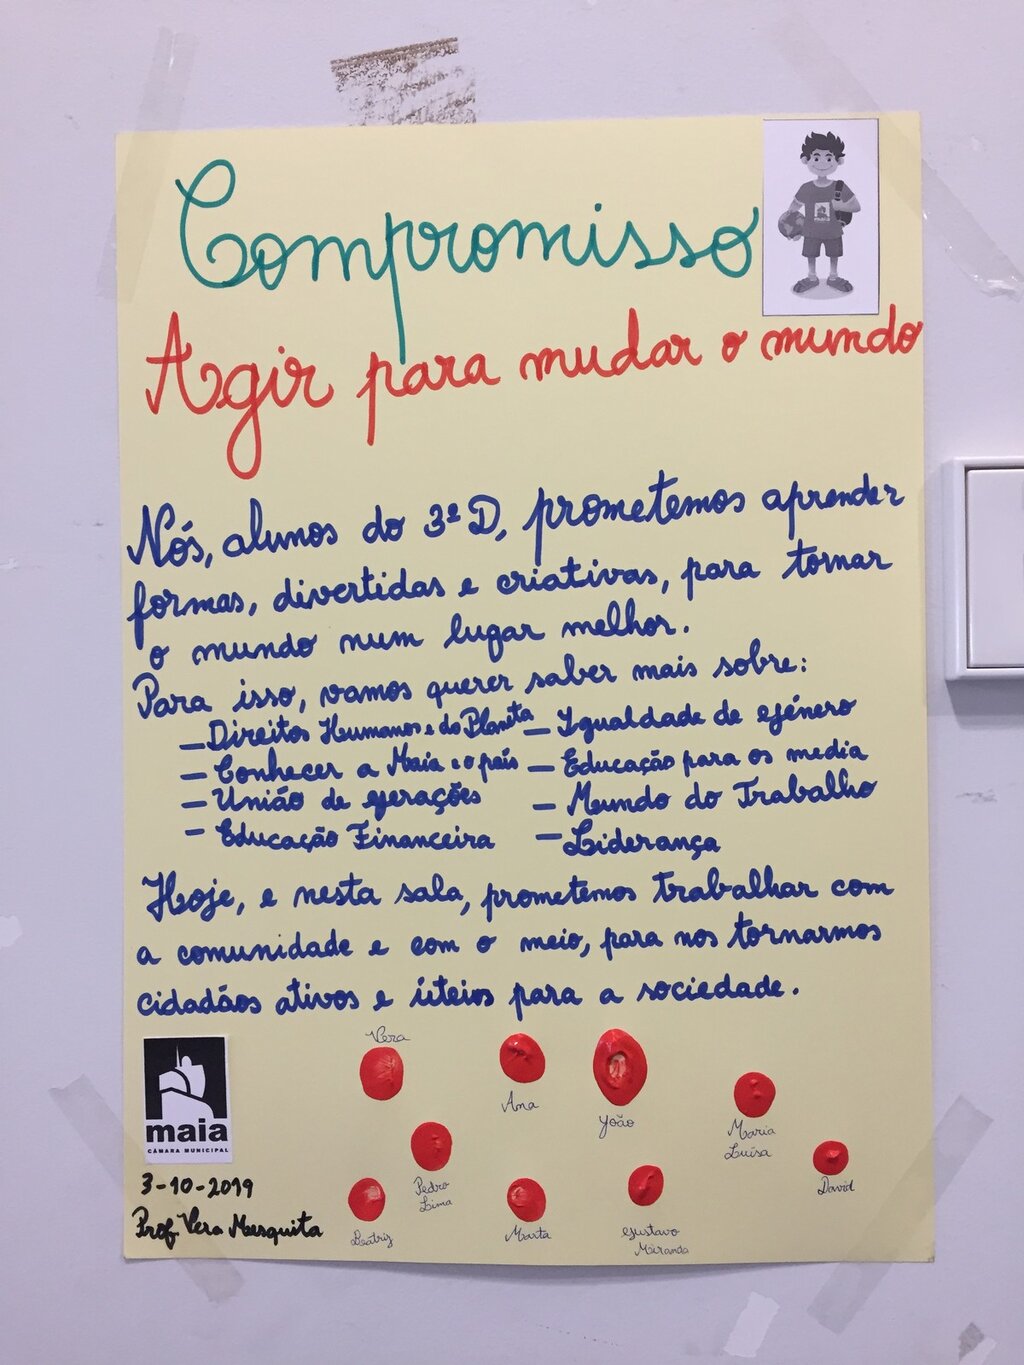 Compromisso
Agir para mudar o mundo
Nós, alunos do 3º D, prometemos aprender
formas, divertidas e criativas, para tornar
o mundo num lugar melhor.
Para isso, vamos querer saber mais sobre:
– Direitos Humanos e do Planeta – Igualdade de género
– Conhecer a Maia e o país – Educação para os media
– União de gerações – Mundo do Trabalho
– Educação Financeira – Liderança
Hoje, e nesta sala, prometemos trabalhar com
a comunidade e com o meio, para nos tornarmos
cidadãos ativos e úteis para a sociedade.
Vera
Ana
João
Maria
Luísa
Pedro
Lima
David
Beatriz
Marta
Gustavo
Miranda
maia
CÂMARA MUNICIPAL
3-10-2019
Prof. Vera Mesquita